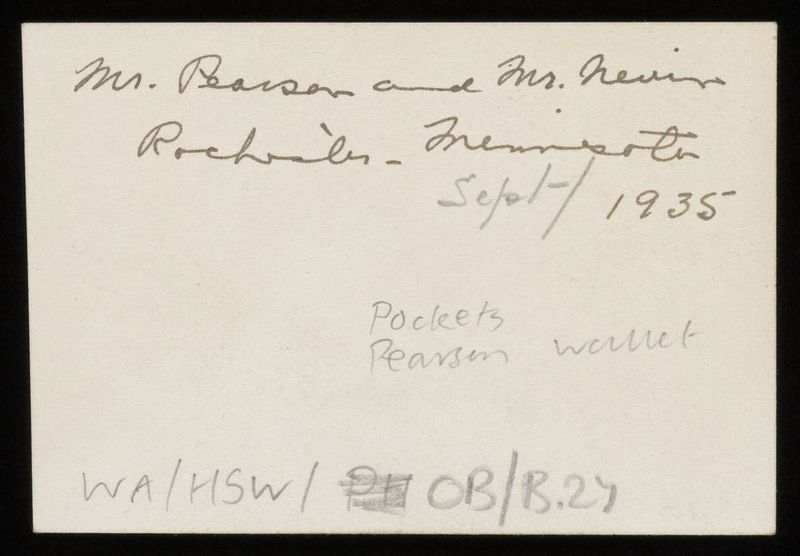 Mr. Pearson and Mr. Nevin
Rochester - Minnesota
Sept/ 1935
Pockets
Pearson wallet
WA/HSW/ PH OB/B.24